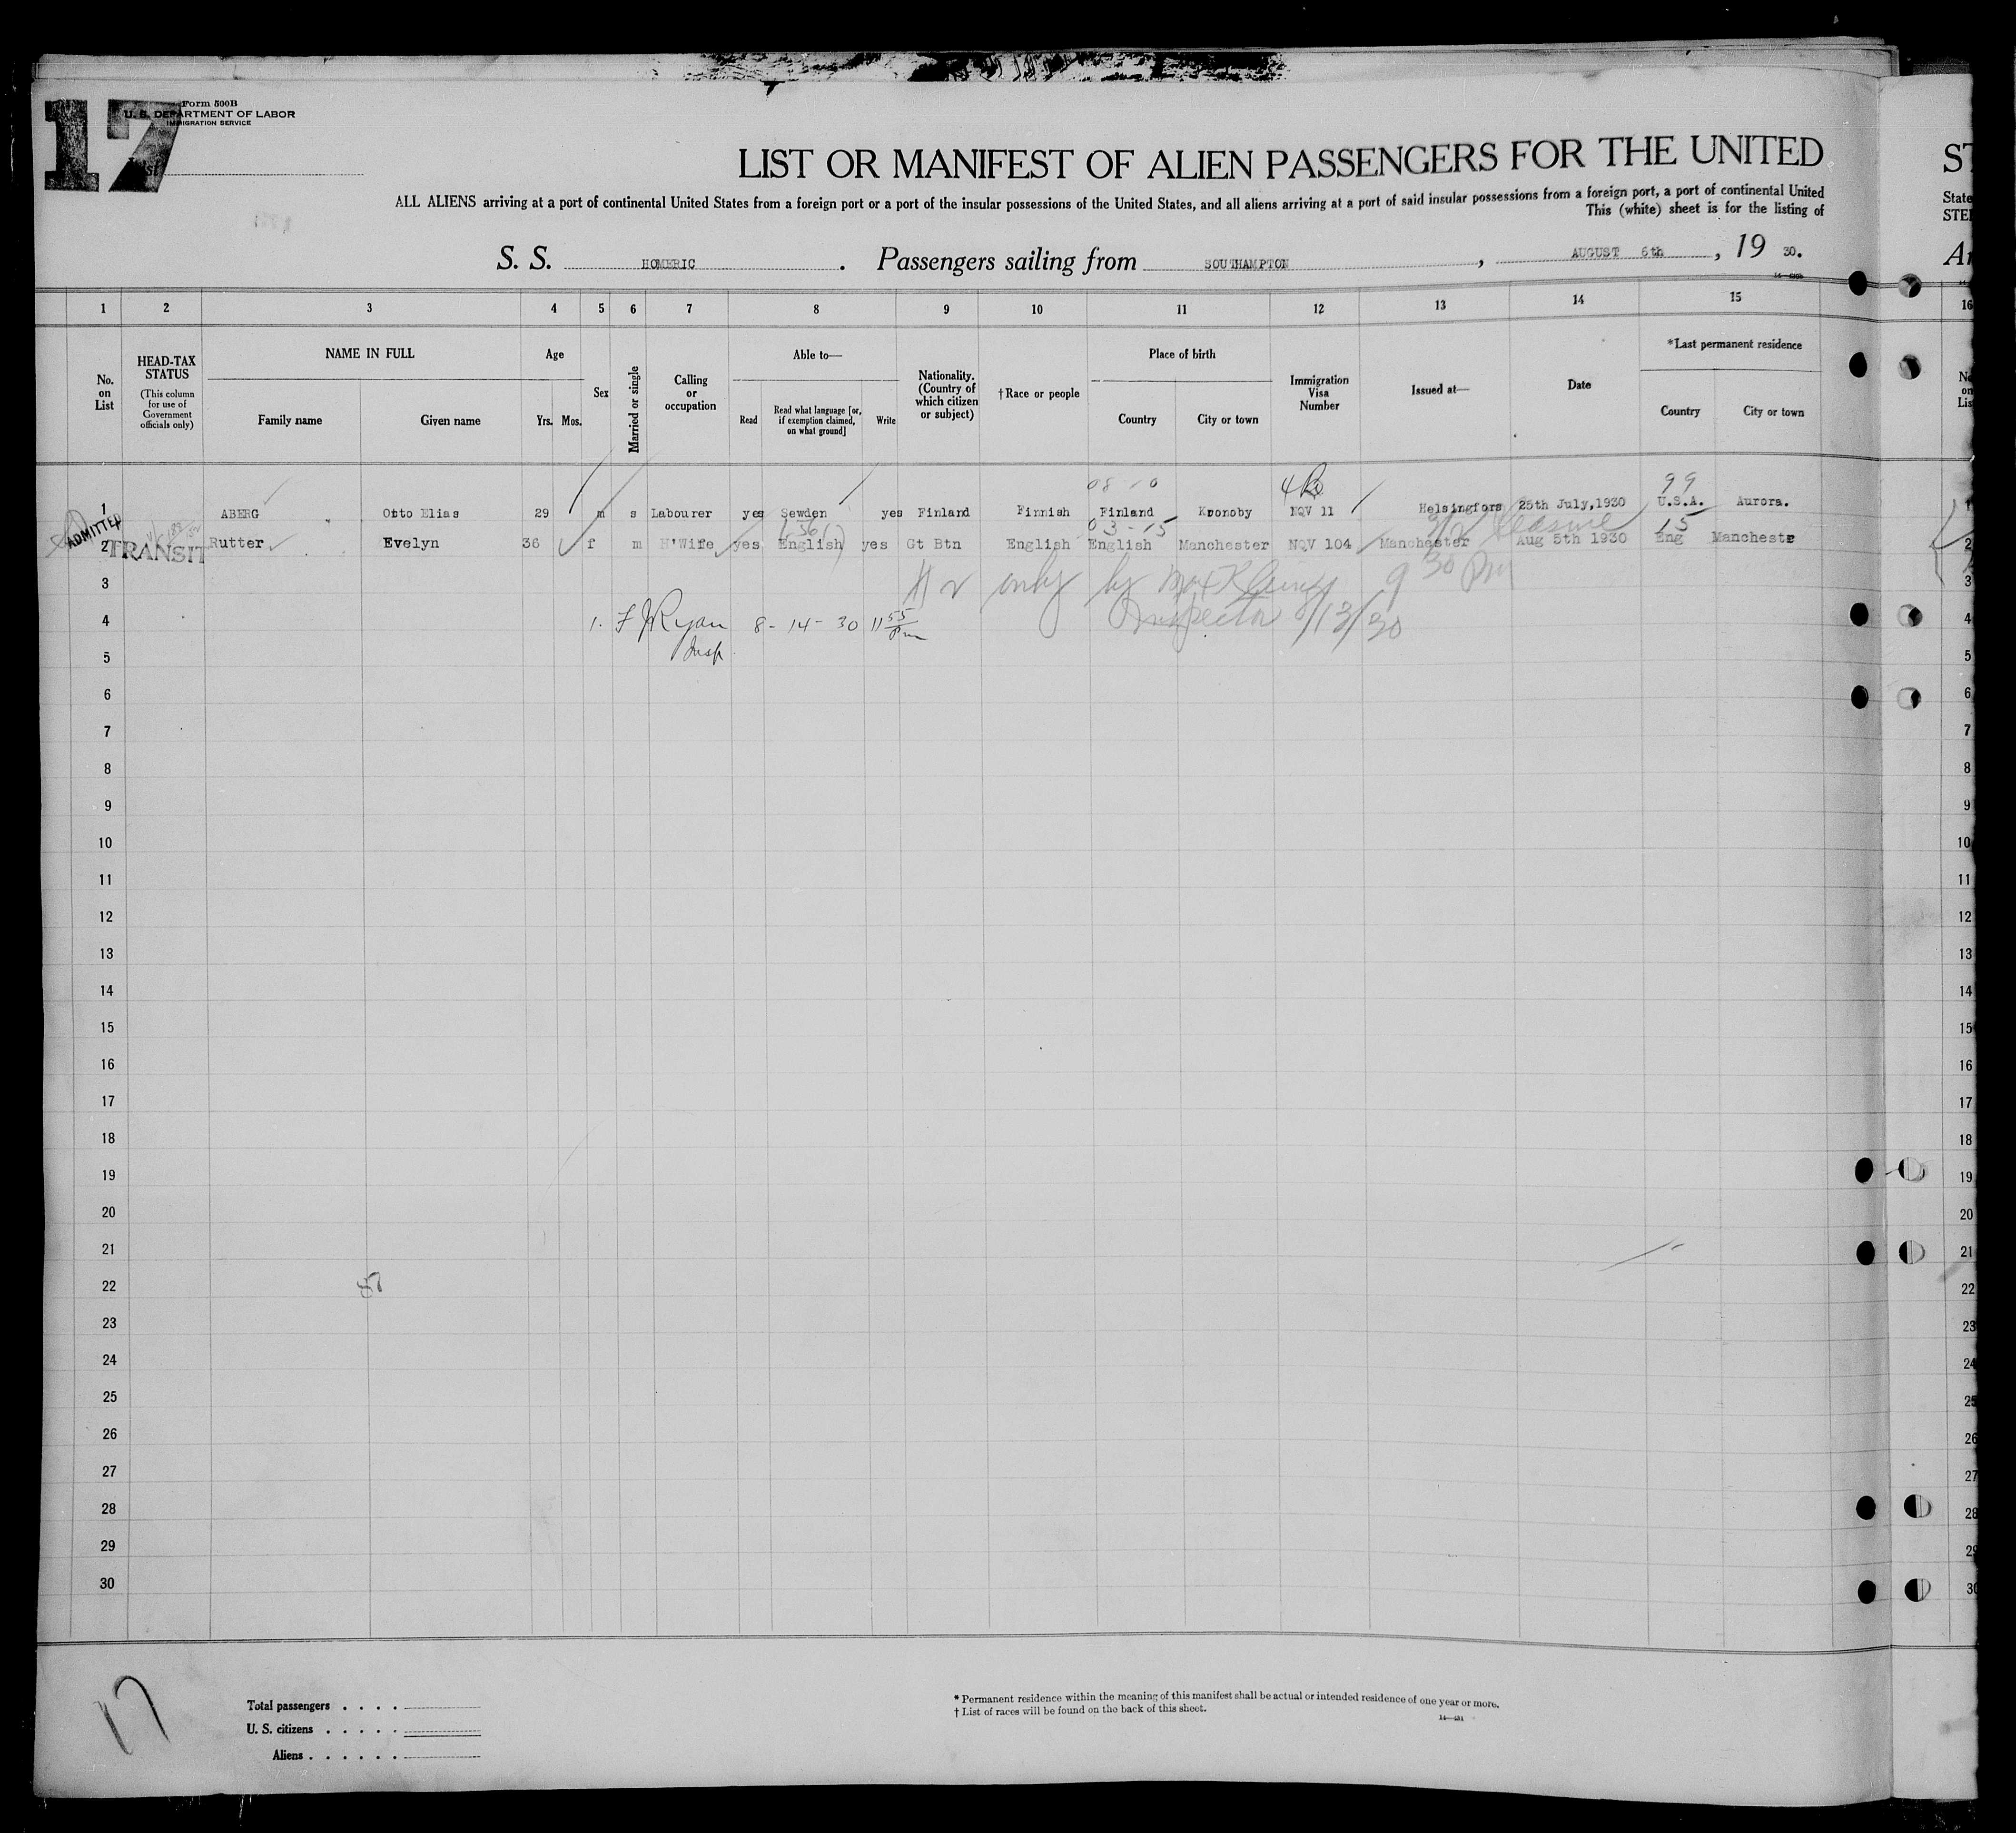 17
Form 500B
U. S. DEPARTMENT OF LABOR
IMMIGRATION SERVICE
List
LIST OR MANIFEST OF ALIEN PASSENGERS FOR THE UNITED
ST
ALL ALIENS arriving at a port of continental United States from a foreign port or a port of the insular possessions of the United States, and all aliens arriving at a port of said insular possessions from a foreign port, a port of continental United
State
This (white) sheet is for the listing of
STE
S. S. HOMERIC. Passengers sailing from SOUTHAMPTON, AUGUST 6th, 19 30.
1 2 3 4 5 6 7 8 9 10 11 12 13 14 15 16
No. on List
HEAD-TAX STATUS
(This column for use of Government officials only)
NAME IN FULL
Family name Given name
Age
Yrs. Mos.
Sex
Married or single
Calling or occupation
Able to—
Read
Read what language [or, if exemption claimed, on what ground]
Write
Nationality. (Country of which citizen or subject)
†Race or people
Place of birth
Country City or town
Immigration Visa Number
Issued at—
Date
*Last permanent residence
Country City or town
08 10 99
1 ABERG Otto Elias 29 m s Labourer yes Sewden yes Finland Finnish Finland Kronoby NQV 11 Helsingfors 25th July,1930 U.S.A. Aurora. 1
ADMITTED
03-15 15
2 TRANSIT Rutter Evelyn 36 f m H'Wife yes English yes Gt Btn English English Manchester NQV 104 Manchester Aug 5th 1930 Eng Manchestr 2
3 # 2 only by 9 30 PM 3
4 1. F J Ryan 8-14-30 11 55 pm Inspector 8/13/30 4
Insp
5 5
6 6
7 7
8 8
9 9
10 10
11 11
12 12
13 13
14 14
15 15
16 16
17 17
18 18
19 19
20 20
21 21
22 22
23 23
24 24
25 25
26 26
27 27
28 28
29 29
30 30
17
Total passengers . . . .
U. S. citizens . . . . .
Aliens . . . . . .
* Permanent residence within the meaning of this manifest shall be actual or intended residence of one year or more.
† List of races will be found on the back of this sheet.